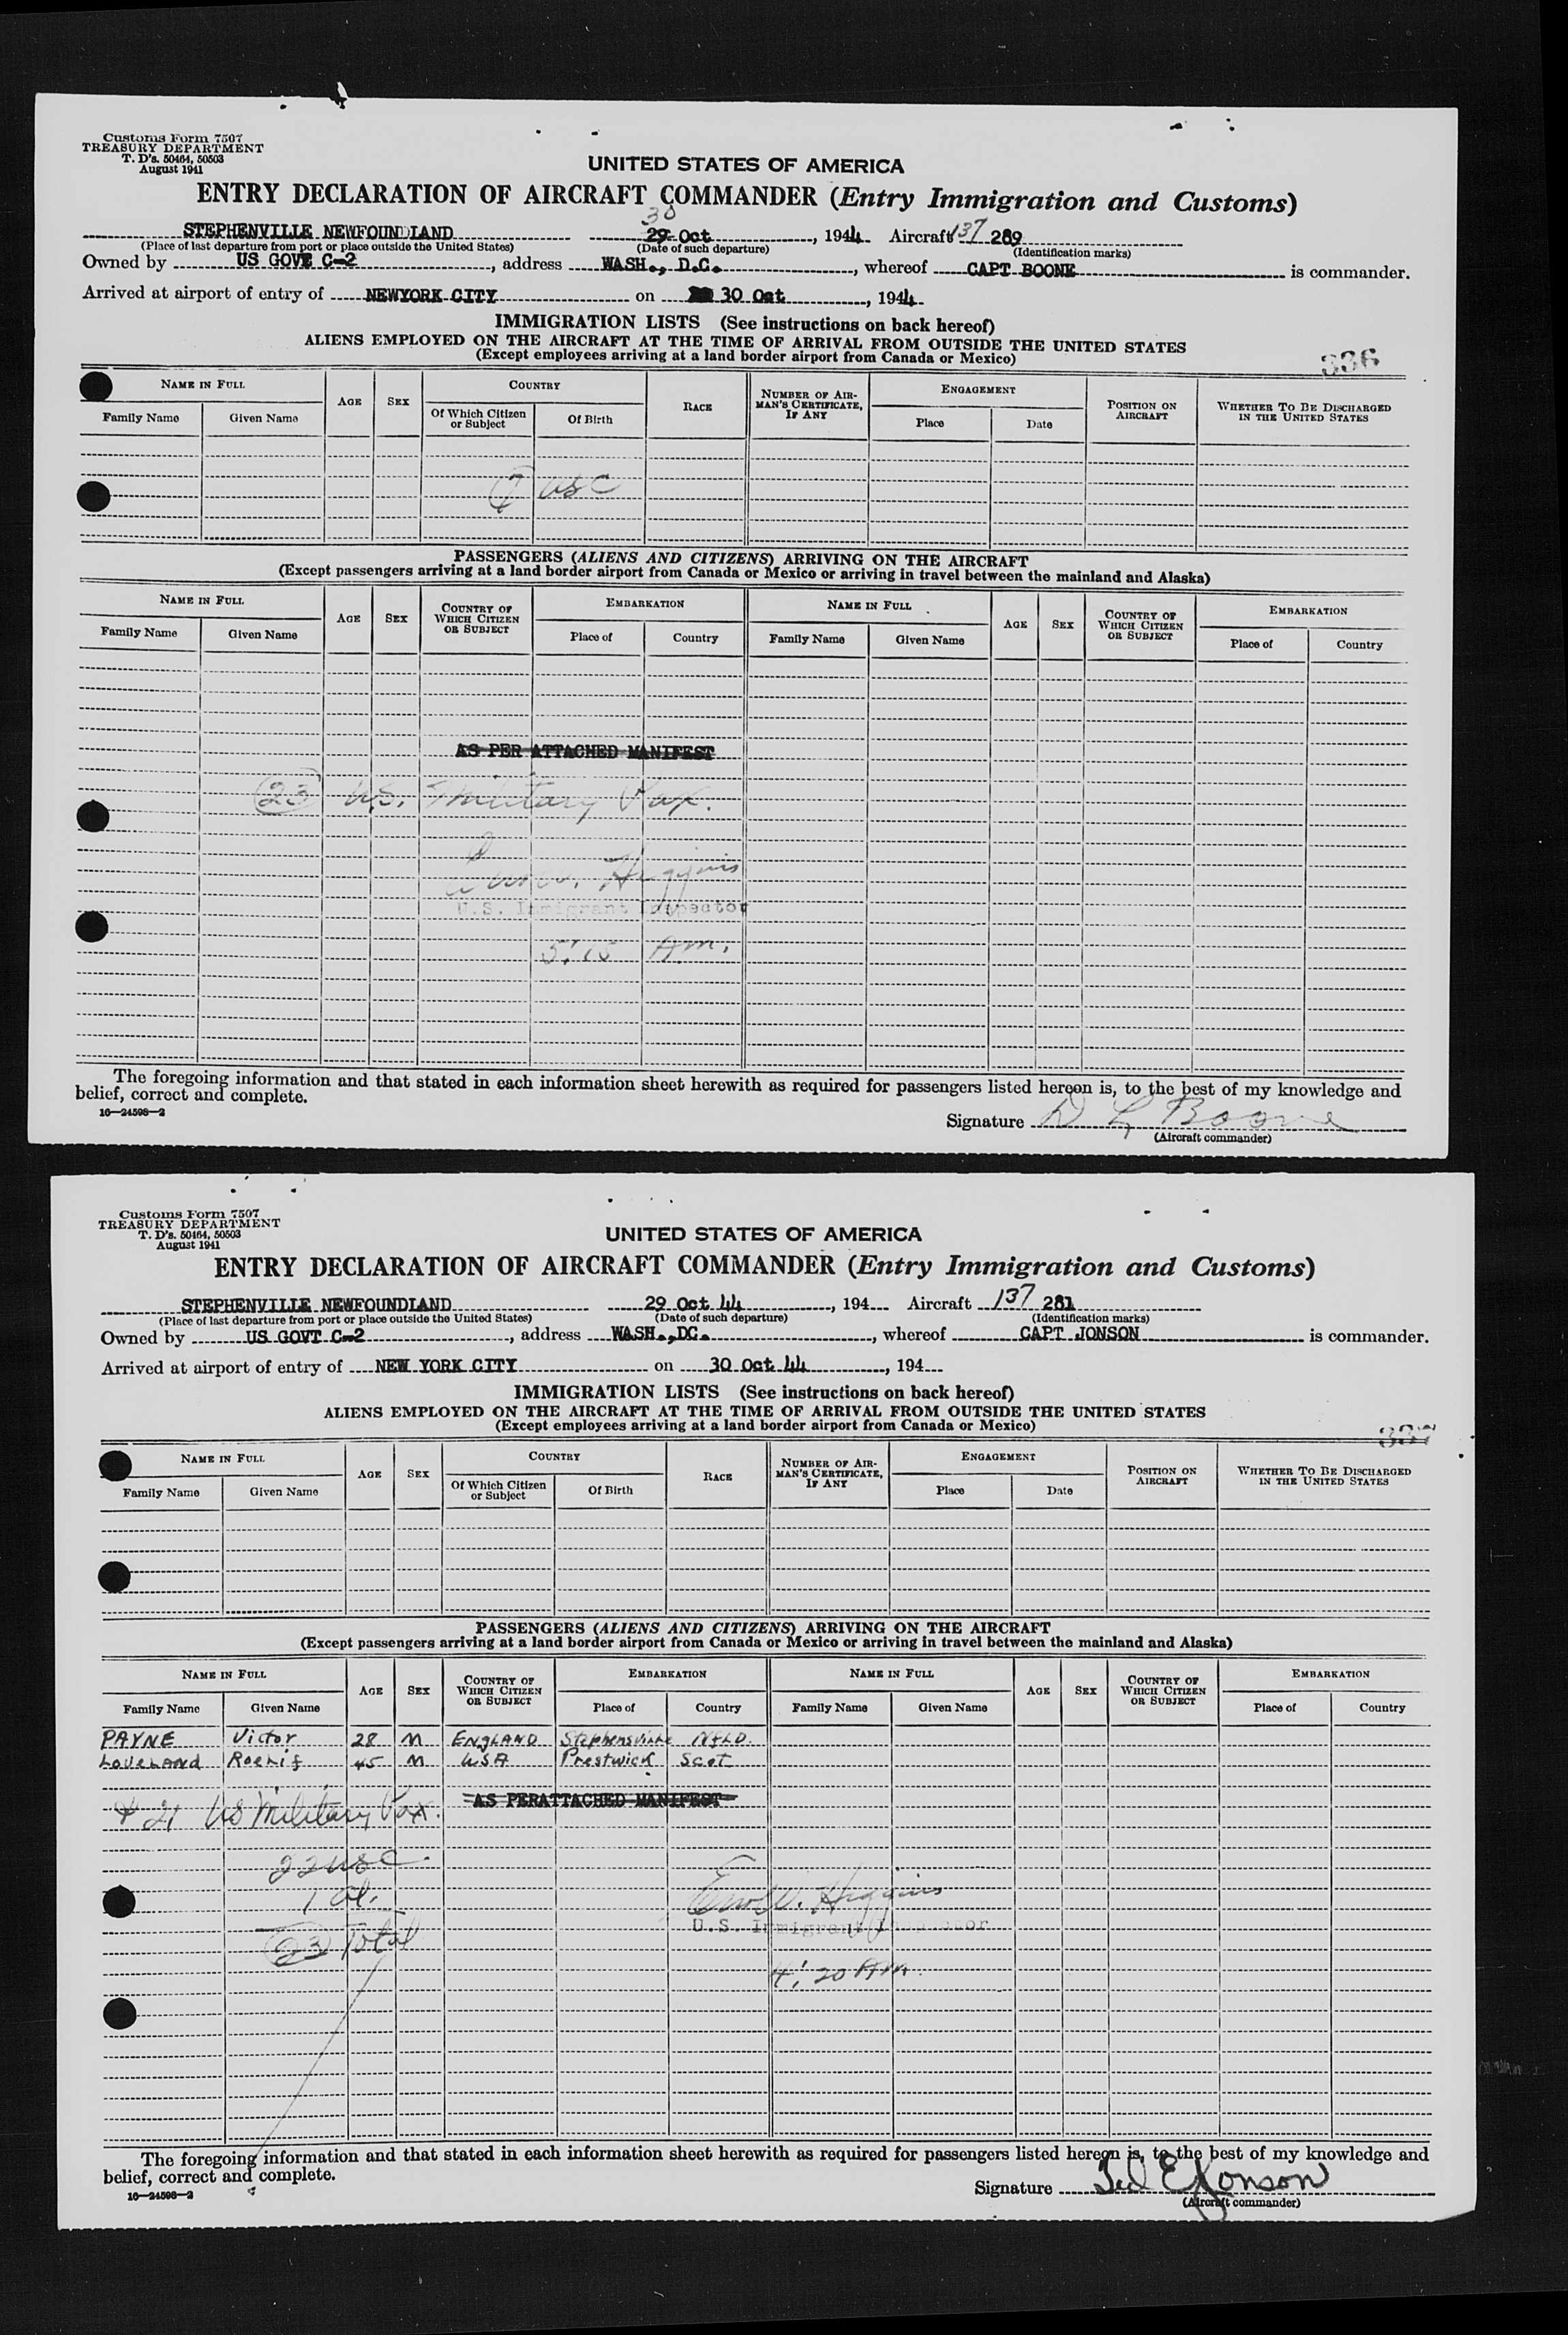 Customs Form 7507
TREASURY DEPARTMENT
T. D's. 50464, 50503
August 1941
UNITED STATES OF AMERICA
ENTRY DECLARATION OF AIRCRAFT COMMANDER (Entry Immigration and Customs)
30
STEPHENVILLE NEWFOUNDLAND 29 Oct, 1944 Aircraft 137 289
(Place of last departure from port or place outside the United States) (Date of such departure) (Identification marks)
Owned by US GOVE C-2, address WASH., D.C., whereof CAPT BOONE is commander.
Arrived at airport of entry of NEWYORK CITY on 30 Oct, 1944
IMMIGRATION LISTS (See instructions on back hereof)
ALIENS EMPLOYED ON THE AIRCRAFT AT THE TIME OF ARRIVAL FROM OUTSIDE THE UNITED STATES
(Except employees arriving at a land border airport from Canada or Mexico)
336
NAME IN FULL AGE SEX COUNTRY RACE NUMBER OF AIRMAN'S CERTIFICATE, IF ANY ENGAGEMENT POSITION ON AIRCRAFT WHETHER TO BE DISCHARGED IN THE UNITED STATES
Family Name Given Name Of Which Citizen or Subject Of Birth Place Date
7 USC
PASSENGERS (ALIENS AND CITIZENS) ARRIVING ON THE AIRCRAFT
(Except passengers arriving at a land border airport from Canada or Mexico or arriving in travel between the mainland and Alaska)
NAME IN FULL AGE SEX COUNTRY OF WHICH CITIZEN OR SUBJECT EMBARKATION NAME IN FULL AGE SEX COUNTRY OF WHICH CITIZEN OR SUBJECT EMBARKATION
Family Name Given Name Place of Country Family Name Given Name Place of Country
AS PER ATTACHED MANIFEST
23 U.S. Military Pax.
Higgins
U.S. Immigrant Inspector
5:15 Am.
The foregoing information and that stated in each information sheet herewith as required for passengers listed hereon is, to the best of my knowledge and
belief, correct and complete.
16—24598—2
Signature D L Boone
(Aircraft commander)
Customs Form 7507
TREASURY DEPARTMENT
T. D's. 50464, 50503
August 1941
UNITED STATES OF AMERICA
ENTRY DECLARATION OF AIRCRAFT COMMANDER (Entry Immigration and Customs)
STEPHENVILLE NEWFOUNDLAND 29 Oct 44, 194 Aircraft 137 281
(Place of last departure from port or place outside the United States) (Date of such departure) (Identification marks)
Owned by US GOVT C-2, address WASH.,DC., whereof CAPT JONSON is commander.
Arrived at airport of entry of NEW YORK CITY on 30 Oct 44, 194
IMMIGRATION LISTS (See instructions on back hereof)
ALIENS EMPLOYED ON THE AIRCRAFT AT THE TIME OF ARRIVAL FROM OUTSIDE THE UNITED STATES
(Except employees arriving at a land border airport from Canada or Mexico)
337
NAME IN FULL AGE SEX COUNTRY RACE NUMBER OF AIRMAN'S CERTIFICATE, IF ANY ENGAGEMENT POSITION ON AIRCRAFT WHETHER TO BE DISCHARGED IN THE UNITED STATES
Family Name Given Name Of Which Citizen or Subject Of Birth Place Date
PASSENGERS (ALIENS AND CITIZENS) ARRIVING ON THE AIRCRAFT
(Except passengers arriving at a land border airport from Canada or Mexico or arriving in travel between the mainland and Alaska)
NAME IN FULL AGE SEX COUNTRY OF WHICH CITIZEN OR SUBJECT EMBARKATION NAME IN FULL AGE SEX COUNTRY OF WHICH CITIZEN OR SUBJECT EMBARKATION
Family Name Given Name Place of Country Family Name Given Name Place of Country
PAYNE Victor 28 M ENGLAND Stephensville NFLD.
LOVELAND 45 M USA Prestwick Scot
AS PERATTACHED MANIFEST
& 21 US Military Pax.
22 USC.
1 Al.
23 Total
Higgins
U.S. Immigrant Inspector
4:20 Am.
The foregoing information and that stated in each information sheet herewith as required for passengers listed hereon is, to the best of my knowledge and
belief, correct and complete.
16—24598—2
Signature Ted E Jonson
(Aircraft commander)